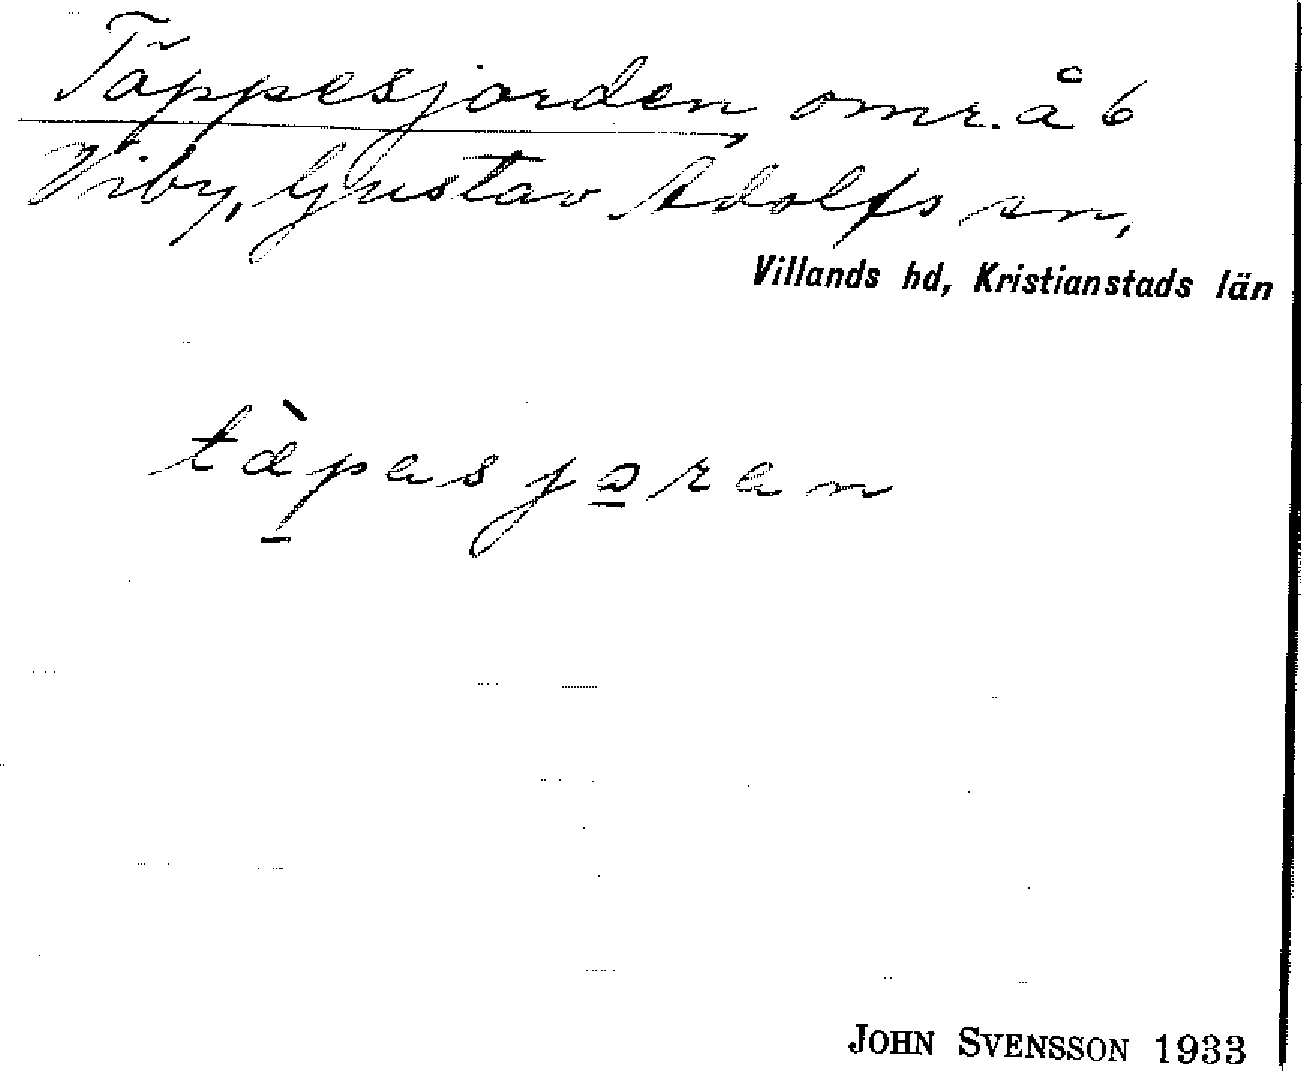 Täppesjorden, omr. å 6
Viby, Gustav Adolfs sn,
Villands hd, Kristianstads län
tæ̀pasjɔran
JOHN SVENSSON 1933